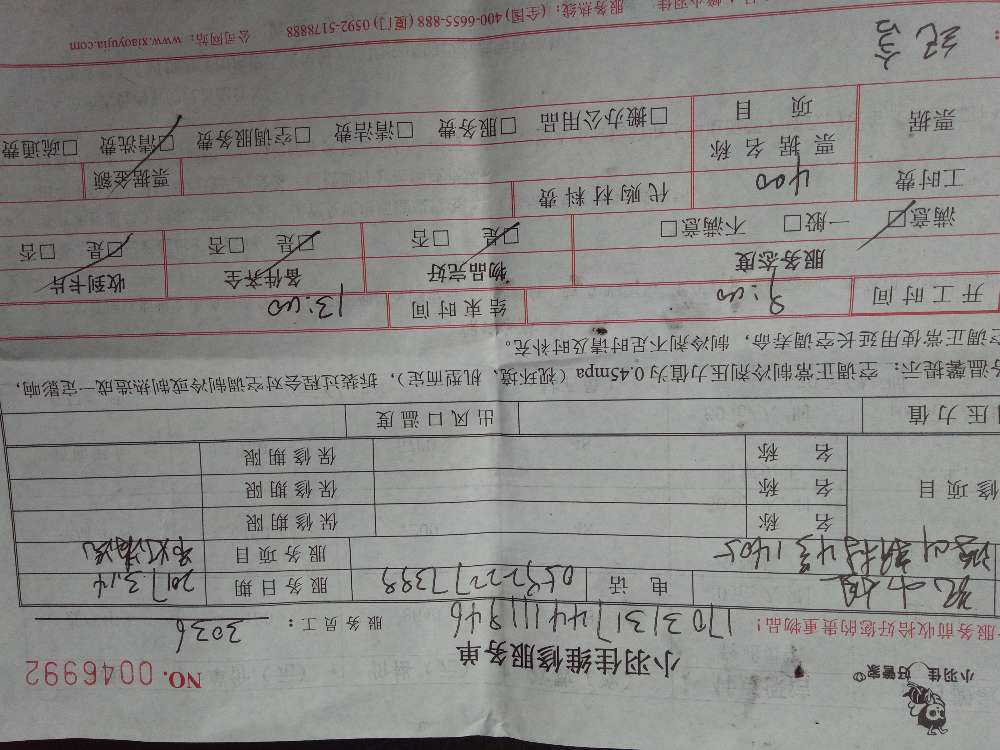 小羽佳 好管家
小羽佳维修服务单
NO. 0046992
服务前收拾好您的贵重物品!
17031317441111946
服务员工: 3036
电话 05922277399 服务日期 2017.3.14
4号1405 服务项目 吊灯清洗
修项目 名称 保修期限
名称 保修期限
名称 保修期限
压力值 出风口温度
温馨提示: 空调正常制冷剂压力值为0.45mpa (视环境、机型而定), 拆装过程会对空调制冷或制热造成一定影响,
空调正常使用延长空调寿命, 制冷剂不足时请及时补充。
开工时间 9:00 结束时间 13:00
服务态度 物品完好 备件齐全 收到卡片
满意☑ 一般□ 不满意□ ☑是 □否 ☑是 □否 ☑是 □否
工时费 400 代购材料费
票据 票据名称 票据金额
项目 □搬办公用品 □服务费 □清洁费 □空调服务费 ☑清洗费 □疏通费
小羽佳 服务热线: (全国) 400-6655-888 (厦门) 0592-5178888 公司网站: www.xiaoyujia.com